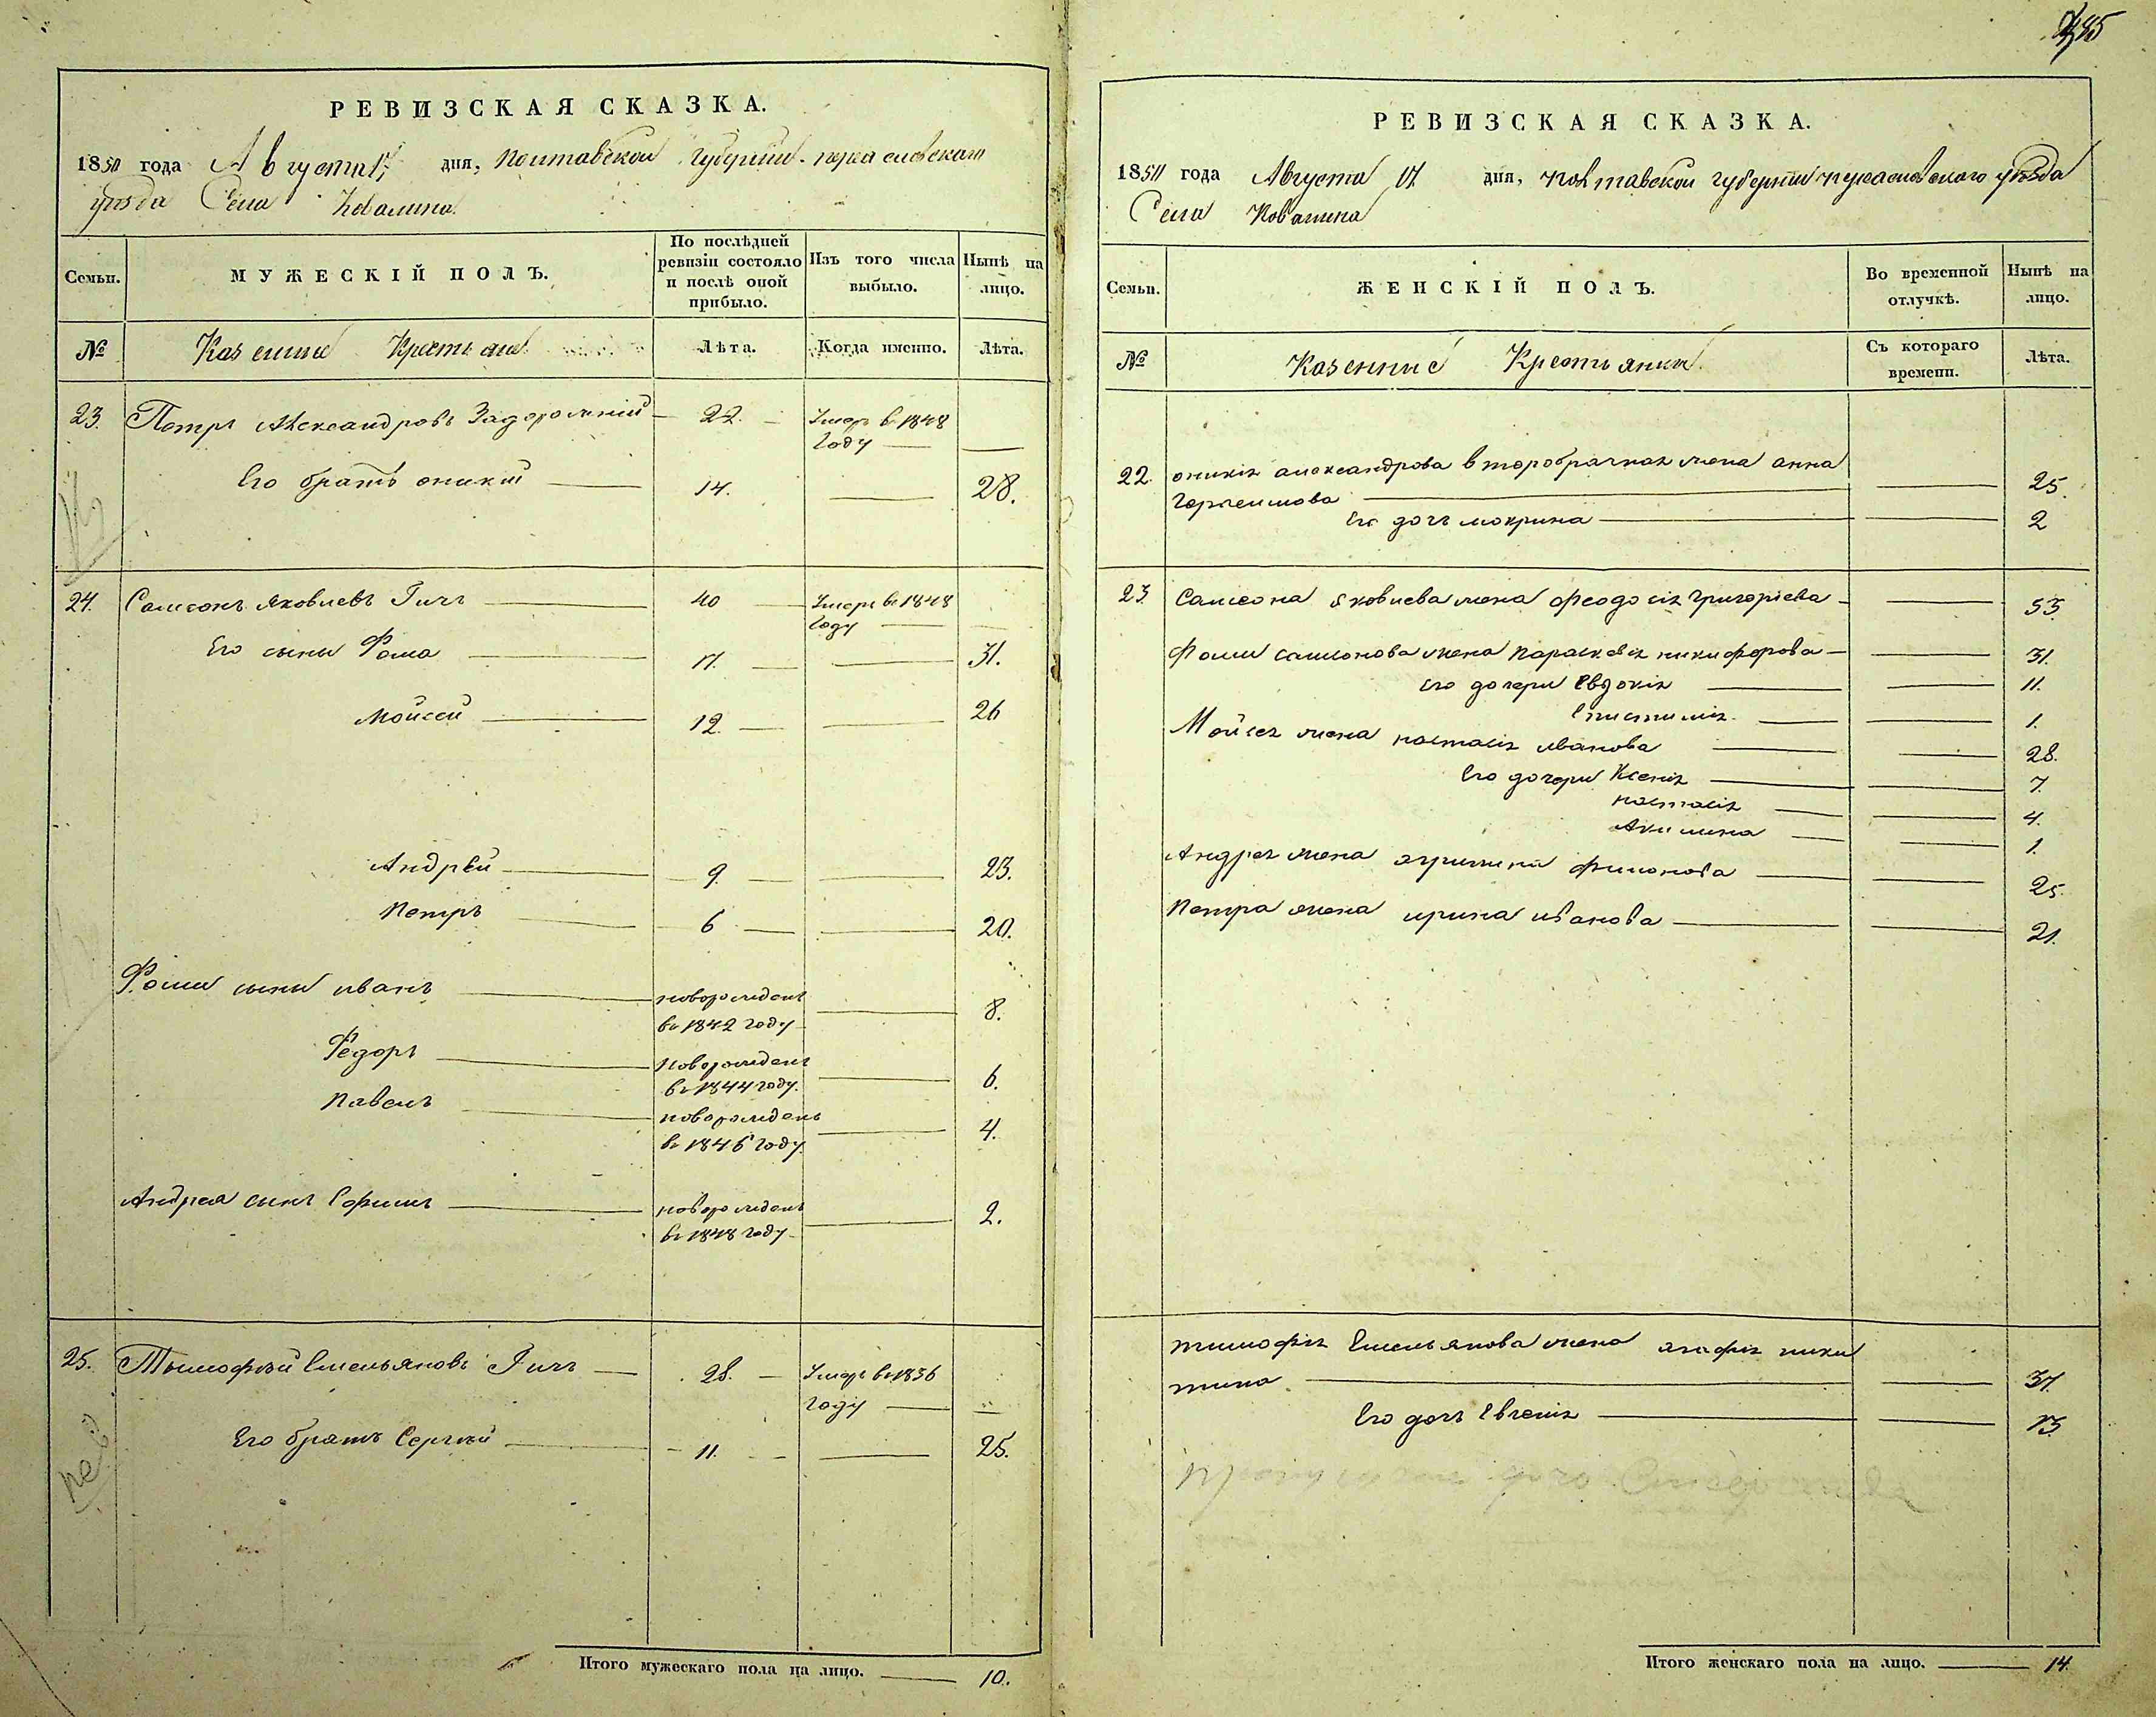 485
РЕВИЗСКАЯ СКАЗКА.
1850 года Августа 17 дня, Полтавской Губернии Переяславскаго
уѣзда Села Ковалина.
Семьи.
МУЖЕСКІЙ ПОЛЪ.
По послѣдней ревизіи состояло и послѣ оной прибыло.
Изъ того числа выбыло.
Нынѣ на лицо.
№
Казенные Крестьяне
Лѣта.
Когда именно.
Лѣта.
23. Петръ Александровъ Задорожний — 22. — Умеръ въ 1848
Году — —
Его братъ оникій — 14. — 28.
24. Самсонъ Яковлевъ Гичъ — 40 Умеръ въ 1848
Году —
Его сыны Фома — 17. — — 31.
Мойсей — 12. — — 26
Андрей — 9. — — 23.
Петръ — 6 — — 20.
Фомы сыны иванъ — новорожденъ
въ 1842 году — 8.
Федоръ — новорожденъ
въ 1844 году. — 6.
Павелъ — новорожденъ
въ 1846 году. — 4.
Андрея сынъ Ефимъ — новорожденъ
въ 1848 году — 2.
25. Тымофѣй Емельяновъ Гичъ — 28. — Умеръ въ 1836
году — —
Его братъ Сергѣй — 11. — — 25.
Итого мужескаго пола на лицо. — 10.
РЕВИЗСКАЯ СКАЗКА.
1850 года Августа 17. дня, Полтавской губерніи переясловскаго уѣзда
Села Ковалина
Семьи.
ЖЕНСКІЙ ПОЛЪ.
Во временной отлучкѣ.
Нынѣ на лицо.
№
Казенные Крестьянки.
Съ котораго времени.
Лѣта.
22. оникія александрова второбрачная жена анна
Герасимова — — 25.
Его дочь мокрина — — 2
23. Самсона яковлева жена феодосія григорієва — — 53.
Фомы самсонова жена параскевія никифорова — — 31.
его дочери Евдокія — — 11.
Епистимія — — 1.
Мойсея жена настасія иванова — — 28.
Его дочери Ксенія — — 7.
настасія — — 4.
Акилина — — 1.
Андрея жена филонова — — 25.
Петра жена ирина иванова — — 21.
тимофія Емельянова жена агафія ники
тина — — 37.
Его дочь Евгенія — — 13.
Итого женскаго пола на лицо. — 14.